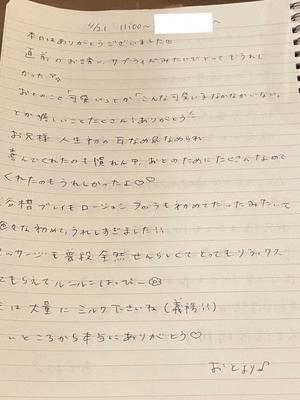 4/21 11:00〜
本日はありがとうございました
直前のお誘い、サプライズみたいでとってもうれし
かった
おとのこと「可愛い」とか「こんな可愛い子なかなかいない」
とか嬉しいことたくさん!ありがとう
お兄様 人生初の耳なめ&なめられ
喜んでくれたのも 慣れ おとのためにたくさんなめて
くれたのもうれしかったよ♡♡
谷槽プレイもローションプロうも初めてだったみたいで
色々な初めて、うれしすぎました!!
ッサージも普段全然せんらしくてとってもリラックス
てもらえてルンルンはっぴー
は大量にミルク下さいね(義務!!)
いところから本当にありがとう♡
おとより♪